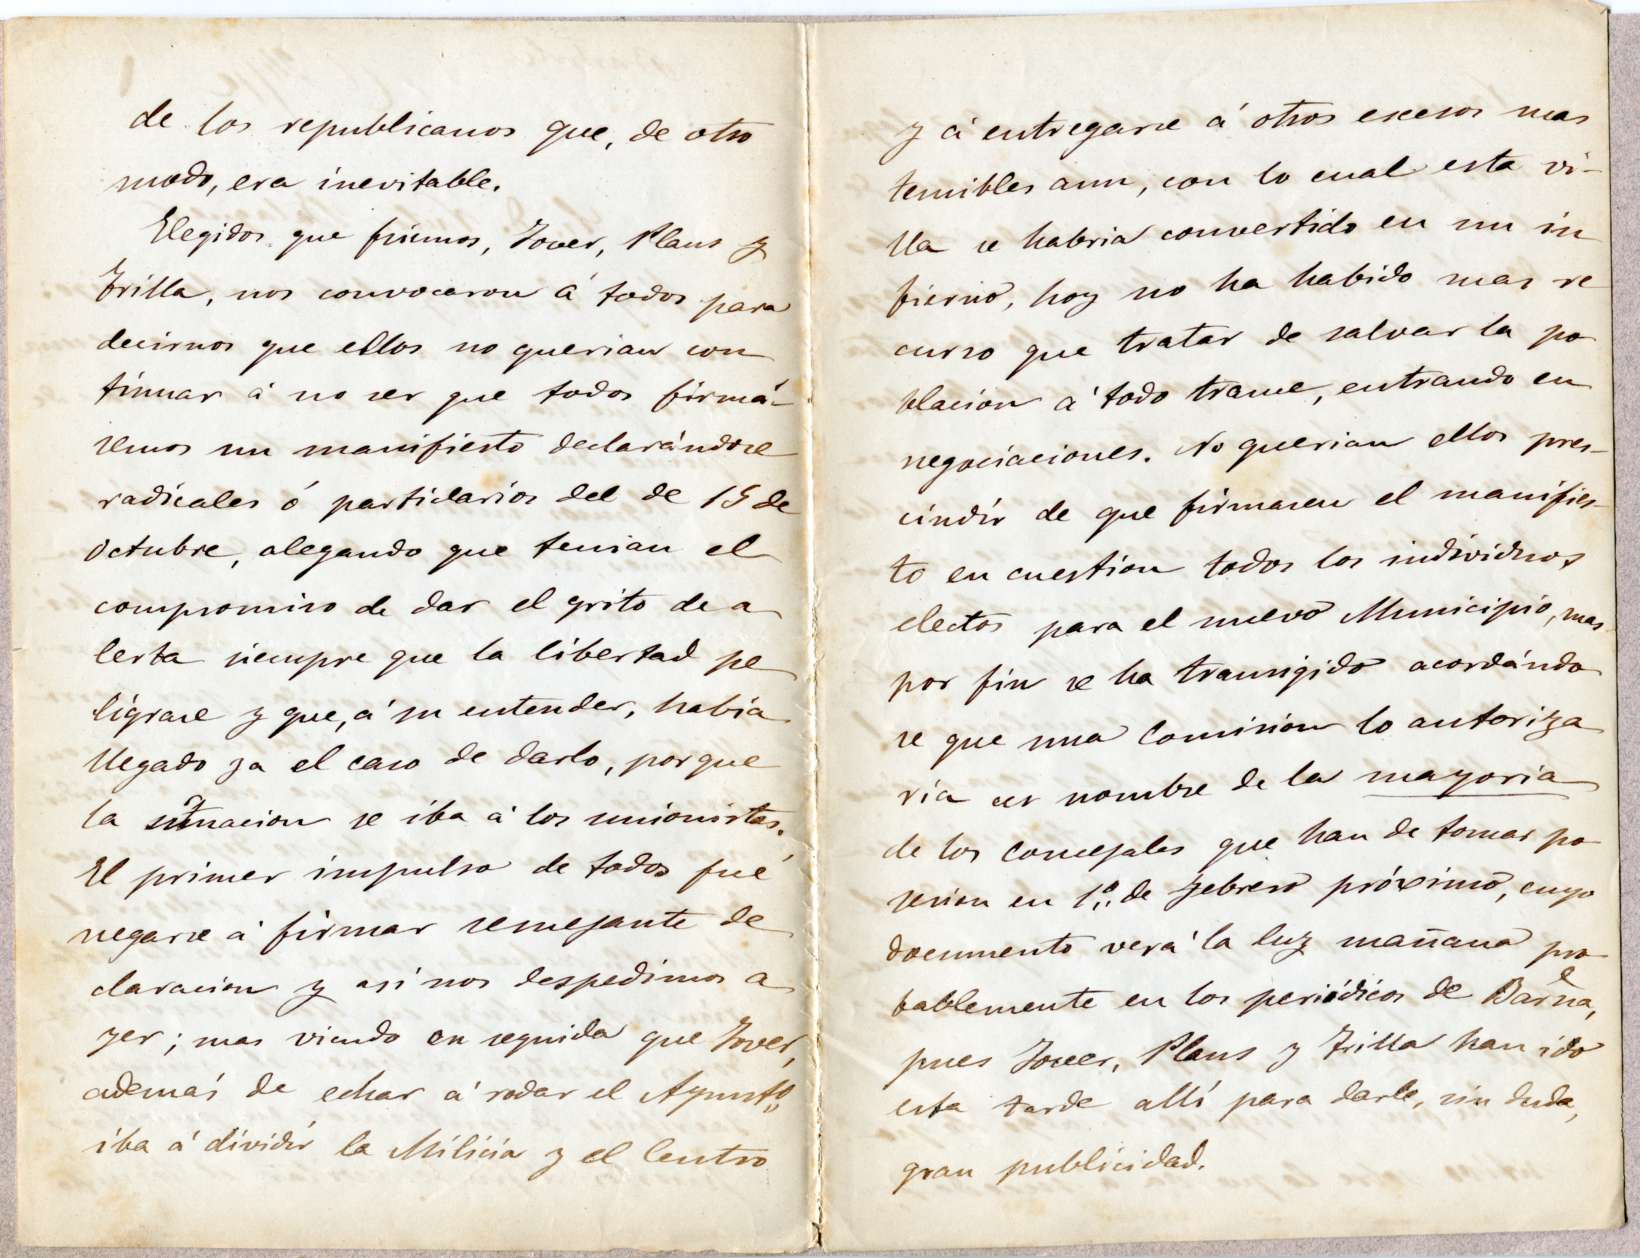 de los republicanos que, de otro
modo, era inevitable.
Elegidos que fuimos, Jover, Plans y
Trilla, nos convocaron á todos para
decirnos que ellos no querian con
tinuar á no ser que todos firmá-
semos un manifiesto declarándose
radicales ó partidarios del de 15 de
Octubre, alegando que tenian el
compromiso de dar el grito de a
lerta siempre que la libertad pe
ligrase y que, á su entender, habia
llegado ya el caso de darlo, porque
la situacion se iba á los unionistas.
El primer impulso de todos fué
negarse á firmar semejante de
claracion y así nos despedimos a
yer; mas viendo en seguida que Jover,
además de echar á rodar el Ayunto
iba á dividir la Milicia y el Centro
y á entregarse á otros escesos mas
temibles aun, con lo cual esta vi-
lla se habria convertido en un in
fierno, hoy no ha habido mas re
curso que tratar de salvar la po
blacion á todo trance, entrando en
negociaciones. No querian ellos pres-
cindir de que firmasen el manifies-
to en cuestion todos los individuos
electos para el nuevo Municipio, mas
por fin se ha transigido acordándo
se que una Comision lo autoriza
ria en nombre de la mayoria
de los concejales que han de tomar po
sesion en 1.º de febrero próximo, cuyo
documento verá la luz mañana pro
bablemente en los periódicos de Barna,
pues Jover, Plans y Trilla han ido
esta tarde allí para darle, sin duda,
gran publicidad.